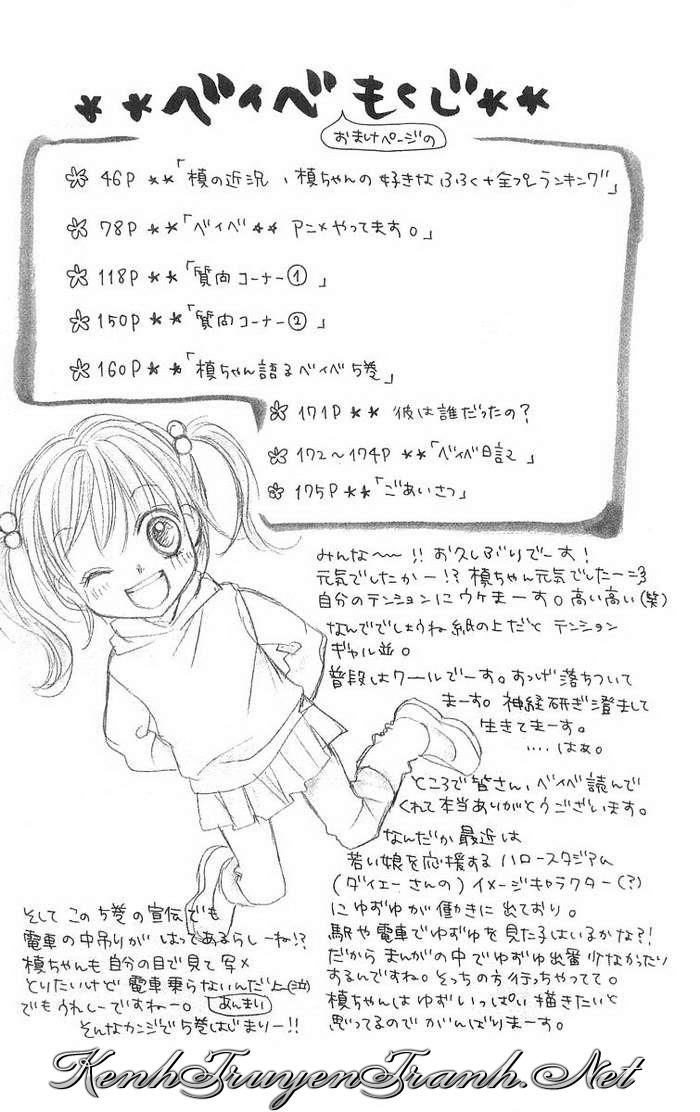 **ベイベもくじ**
おまけページの
46P **「槙の近況、槙ちゃんの好きなふろく+全プレランキング」
78P **「ベイベ** アニメやってます。」
118P **「質問コーナー①」
150P **「質問コーナー②」
160P **「槙ちゃん語るベイベ5巻」
171P ** 彼は誰だったの?
172~174P **「ベイベ日記」
175P **「ごあいさつ」
みんな〜!!お久しぶりでーす!
元気でしたかー!?槙ちゃん元気でしたー
自分のテンションにウケまーす。高い高い(笑)
なんででしょうね紙の上だと テンション
ギャル並。
普段はクールでーす。すっげ落ちついて
まーす。神経研ぎ澄まして
生きてまーす。
‥‥はぁ。
ところで皆さん、ベイベ読んで
くれて本当ありがとうございます。
なんだか最近は
若い娘を応援するハロースタジアム
(ダイエーさんの)イメージキャラクター(?)
にゆずゆが働きに出ており。
駅や電車でゆずゆを見た子はいるかな?!
だからまんがの中でゆずゆ出番少なかったり
するんですね。そっちの方行っちゃってて。
槙ちゃんはゆずいっぱい描きたいと
思ってるのでがんばりまーす。
そしてこの5巻の宣伝でも
電車の中吊りがはってあるらしーね!?
槙ちゃんも自分の目で見て写メ
とりたいけど電車乗らないんだよ(泣)
あんまい
でもうれしーですねー。
そんなカンジで5巻はじまりー!!
KenhTruyenTranh.Net